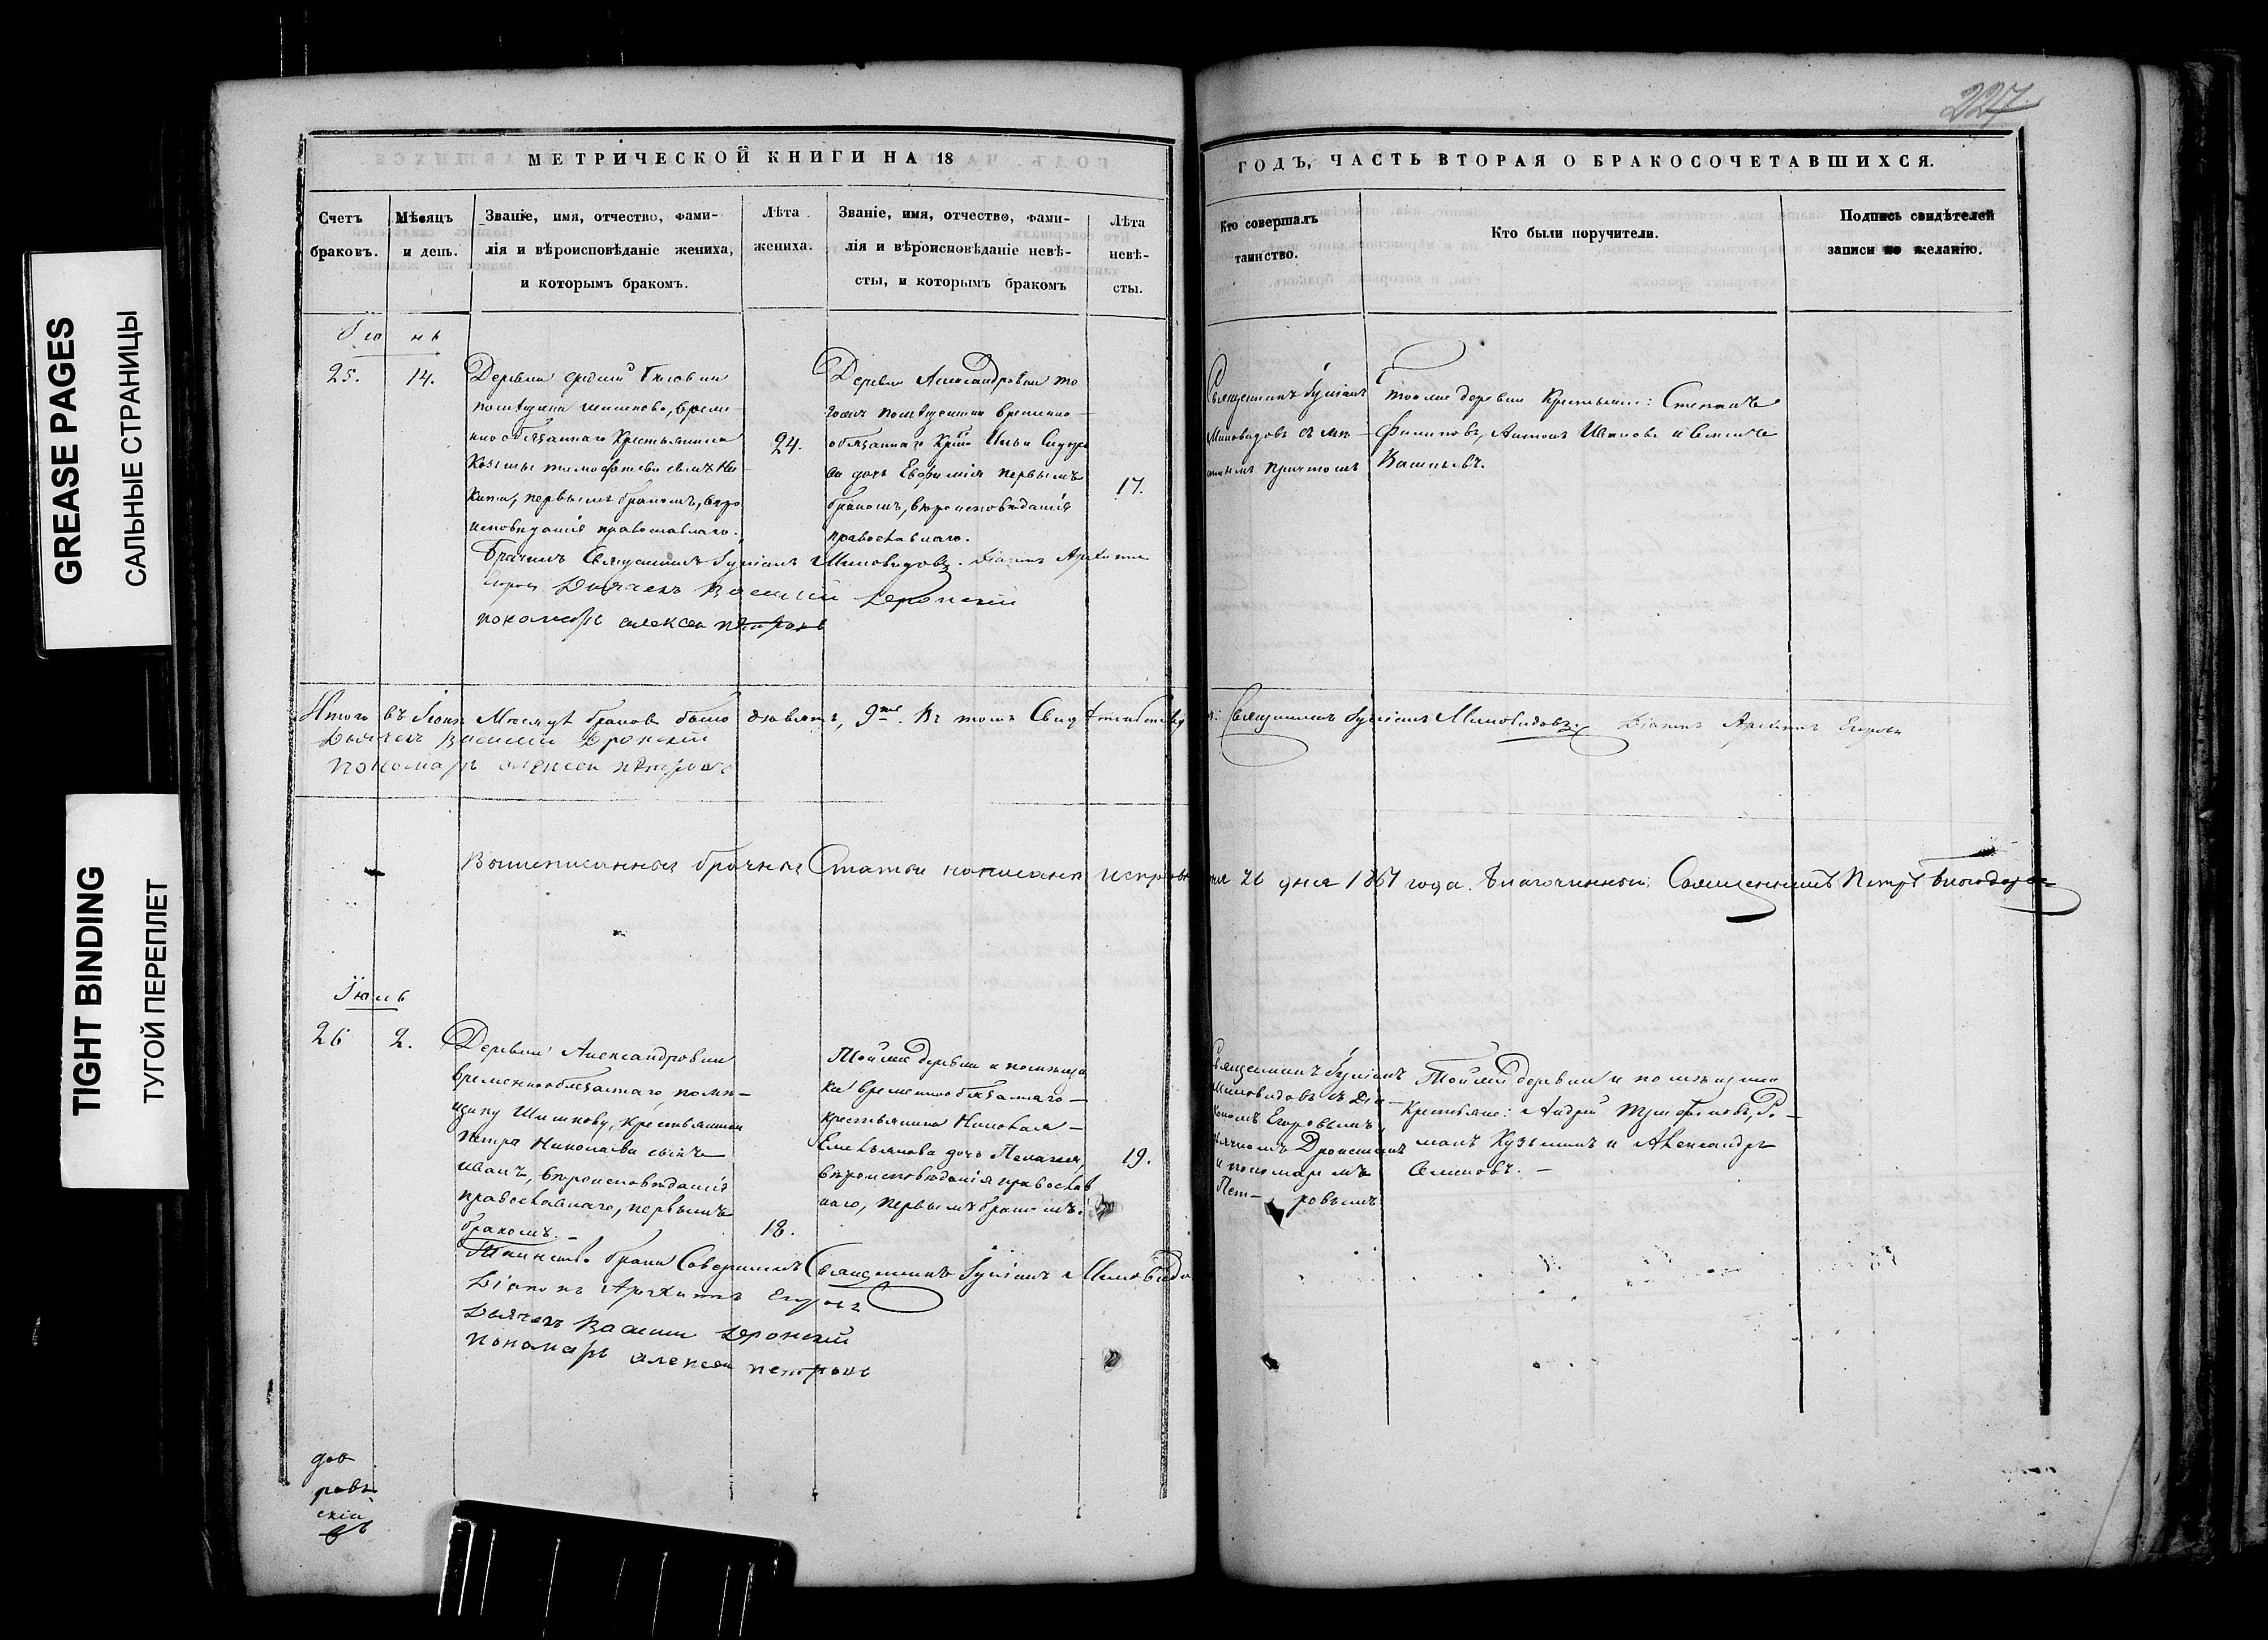 GREASE PAGES
САЛЬНЫЕ СТРАНИЦЫ
TIGHT BINDING
ТУГОЙ ПЕРЕПЛЕТ
227
МЕТРИЧЕСКОЙ КНИГИ НА 18
ГОДЪ, ЧАСТЬ ВТОРАЯ О БРАКОСОЧЕТАВШИХСЯ.
Счетъ
браковъ.
Мѣсяцъ
и день.
Званіе, имя, отчество, фами-
лія и вѣроисповѣданіе жениха,
и которымъ бракомъ.
Лѣта
жениха.
Званіе, имя, отчество, фами-
лія и вѣроисповѣданіе невѣ-
сты, и которымъ бракомъ
Лѣта
невѣ-
сты.
Кто совершалъ
таинство.
Кто были поручители.
Подпись свидѣтелей
записи по желанію.
Іюнь
25.
14.
Деревни
помѣщика Шишкова, време-
ннообязаннаго Крестьянина
Козьмы Тимофеева сынъ Ни-
кита, первымъ бракомъ, вѣро
исповѣданія православнаго.
24.
Деревни Александровки то
гожъ помѣщика временно-
обязаннаго Ильи Сидоро
ва дочь Евфимія первымъ
бракомъ, вѣроисповѣданія
православнаго.
17.
Священникъ Луліанъ
Миловидовъ съ
причтомъ
Тоя же деревни Крестьяне: Степанъ
Филиповъ, Антонъ Ивановъ и Семенъ
Васильевъ.
Священникъ Миловидовъ. Діаконъ
Егоровъ Дьячекъ Василій Дронскій
пономарь алексеи петровъ
Итого въ Іюнѣ Месяцѣ браковъ было девять, 9ть. Въ томъ Свидѣтельству
ю: Священникъ Миловидовъ. Діаконъ Егоровъ
Дьячекъ Василій Дронскій
пономарь алексеи петровъ
Вышеписанныя брачныя Статьи писаны исправно
26 дня 1867 года. Благочинный Священникъ Петръ
Іюль
26
2.
Деревни Александровки
временнообязаннаго помѣ-
щику Шишкову, Крестьянина
Петра Николаева сынъ
Иванъ, вѣроисповѣданія
православнаго, первымъ
бракомъ. -
18.
Той же деревни и помѣщи
ка временнообязаннаго -
крестьянина Николая -
Емельянова дочь Пелагея,
вѣроисповѣданія православ
наго, первымъ бракомъ.
19.
Священникъ
Миловидовъ съ Діа-
кономъ Егоровымъ,
дьячкомъ Дронскимъ
и пономаремъ
Пет- ровымъ
Той же деревни и помѣщика
Крестьяне: Андрей Трофимовъ, Ро-
манъ Кузьминъ и Александръ
Семеновъ. -
Таинство брака Совершилъ Священникъ Миловидо
Діаконъ Егоровъ
Дьячекъ Василіи Дронскій
пономарь алексеи петровъ